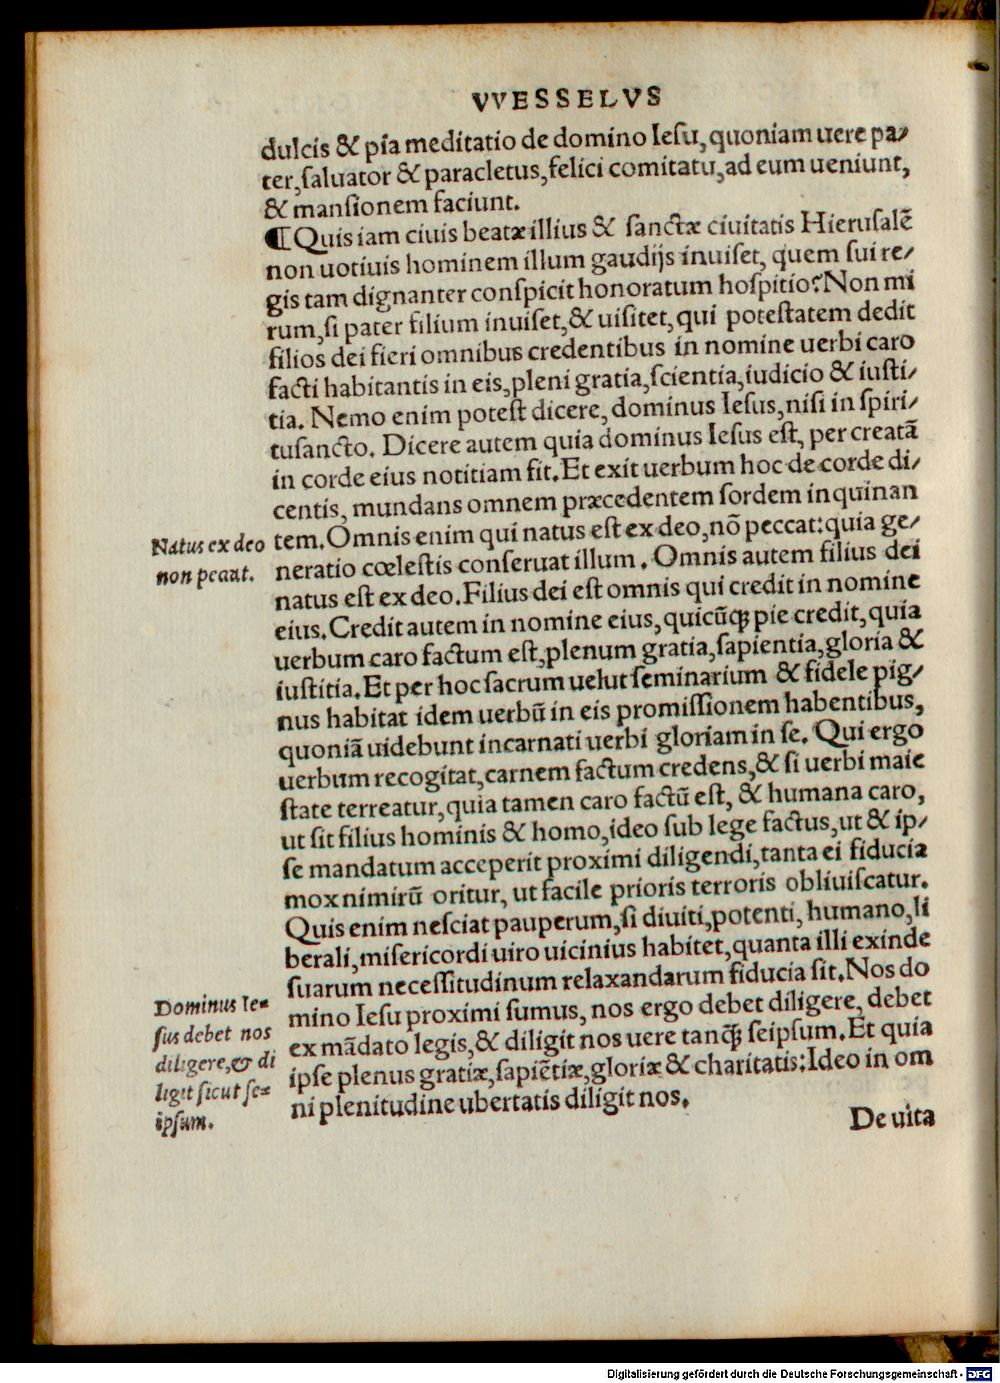 VVESSELVS
dulcis & pia meditatio de domino Iesu, quoniam uere pa⸗
ter, saluator & paracletus, felici comitatu, ad eum ueniunt,
& mansionem faciunt.
¶ Quis iam ciuis beatæ illius & sanctæ ciuitatis Hierusalē
non uotiuis hominem illum gaudijs inuiset, quem sui re⸗
gis tam dignanter conspicit honoratum hospitio? Non mi
rum, si pater filium inuiset, & uisitet, qui potestatem dedit
filios dei fieri omnibus credentibus in nomine uerbi caro
facti habitantis in eis, pleni gratia, scientia, iudicio & iusti⸗
tia. Nemo enim potest dicere, dominus Iesus, nisi in spiri⸗
tusancto. Dicere autem quia dominus Iesus est, per creatā
in corde eius notitiam fit. Et exit uerbum hoc de corde di⸗
centis, mundans omnem præcedentem sordem inquinan
tem. Omnis enim qui natus est ex deo, nō peccat: quia ge⸗
neratio cœlestis conseruat illum. Omnis autem filius dei
natus est ex deo. Filius dei est omnis qui credit in nomine
eius. Credit autem in nomine eius, quicūq; pie credit, quia
uerbum caro factum est, plenum gratia, sapientia, gloria &
iustitia. Et per hoc sacrum uelut seminarium & fidele pig⸗
nus habitat idem uerbū in eis promissionem habentibus,
quoniā uidebunt incarnati uerbi gloriam in se. Qui ergo
uerbum recogitat, carnem factum credens, & si uerbi maie
state terreatur, quia tamen caro factū est, & humana caro,
ut sit filius hominis & homo, ideo sub lege factus, ut & ip⸗
se mandatum acceperit proximi diligendi, tanta ei fiducia
mox nimirū oritur, ut facile prioris terroris obliuiscatur.
Quis enim nesciat pauperum, si diuiti, potenti, humano, li
berali, misericordi uiro uicinius habitet, quanta illi exinde
suarum necessitudinum relaxandarum fiducia sit. Nos do
mino Iesu proximi sumus, nos ergo debet diligere, debet
ex mādato legis, & diligit nos uere tanq̄; seipsum. Et quia
ipse plenus gratiæ, sapiētiæ, gloriæ & charitatis: Ideo in om
ni plenitudine ubertatis diligit nos.
De uita
Natus ex deo
non peccat.
Dominus Ie⸗
sus debet nos
diligere, & di
ligit sicut se⸗
ipsum.
Digitalisierung gefördert durch die Deutsche Forschungsgemeinschaft - DFG